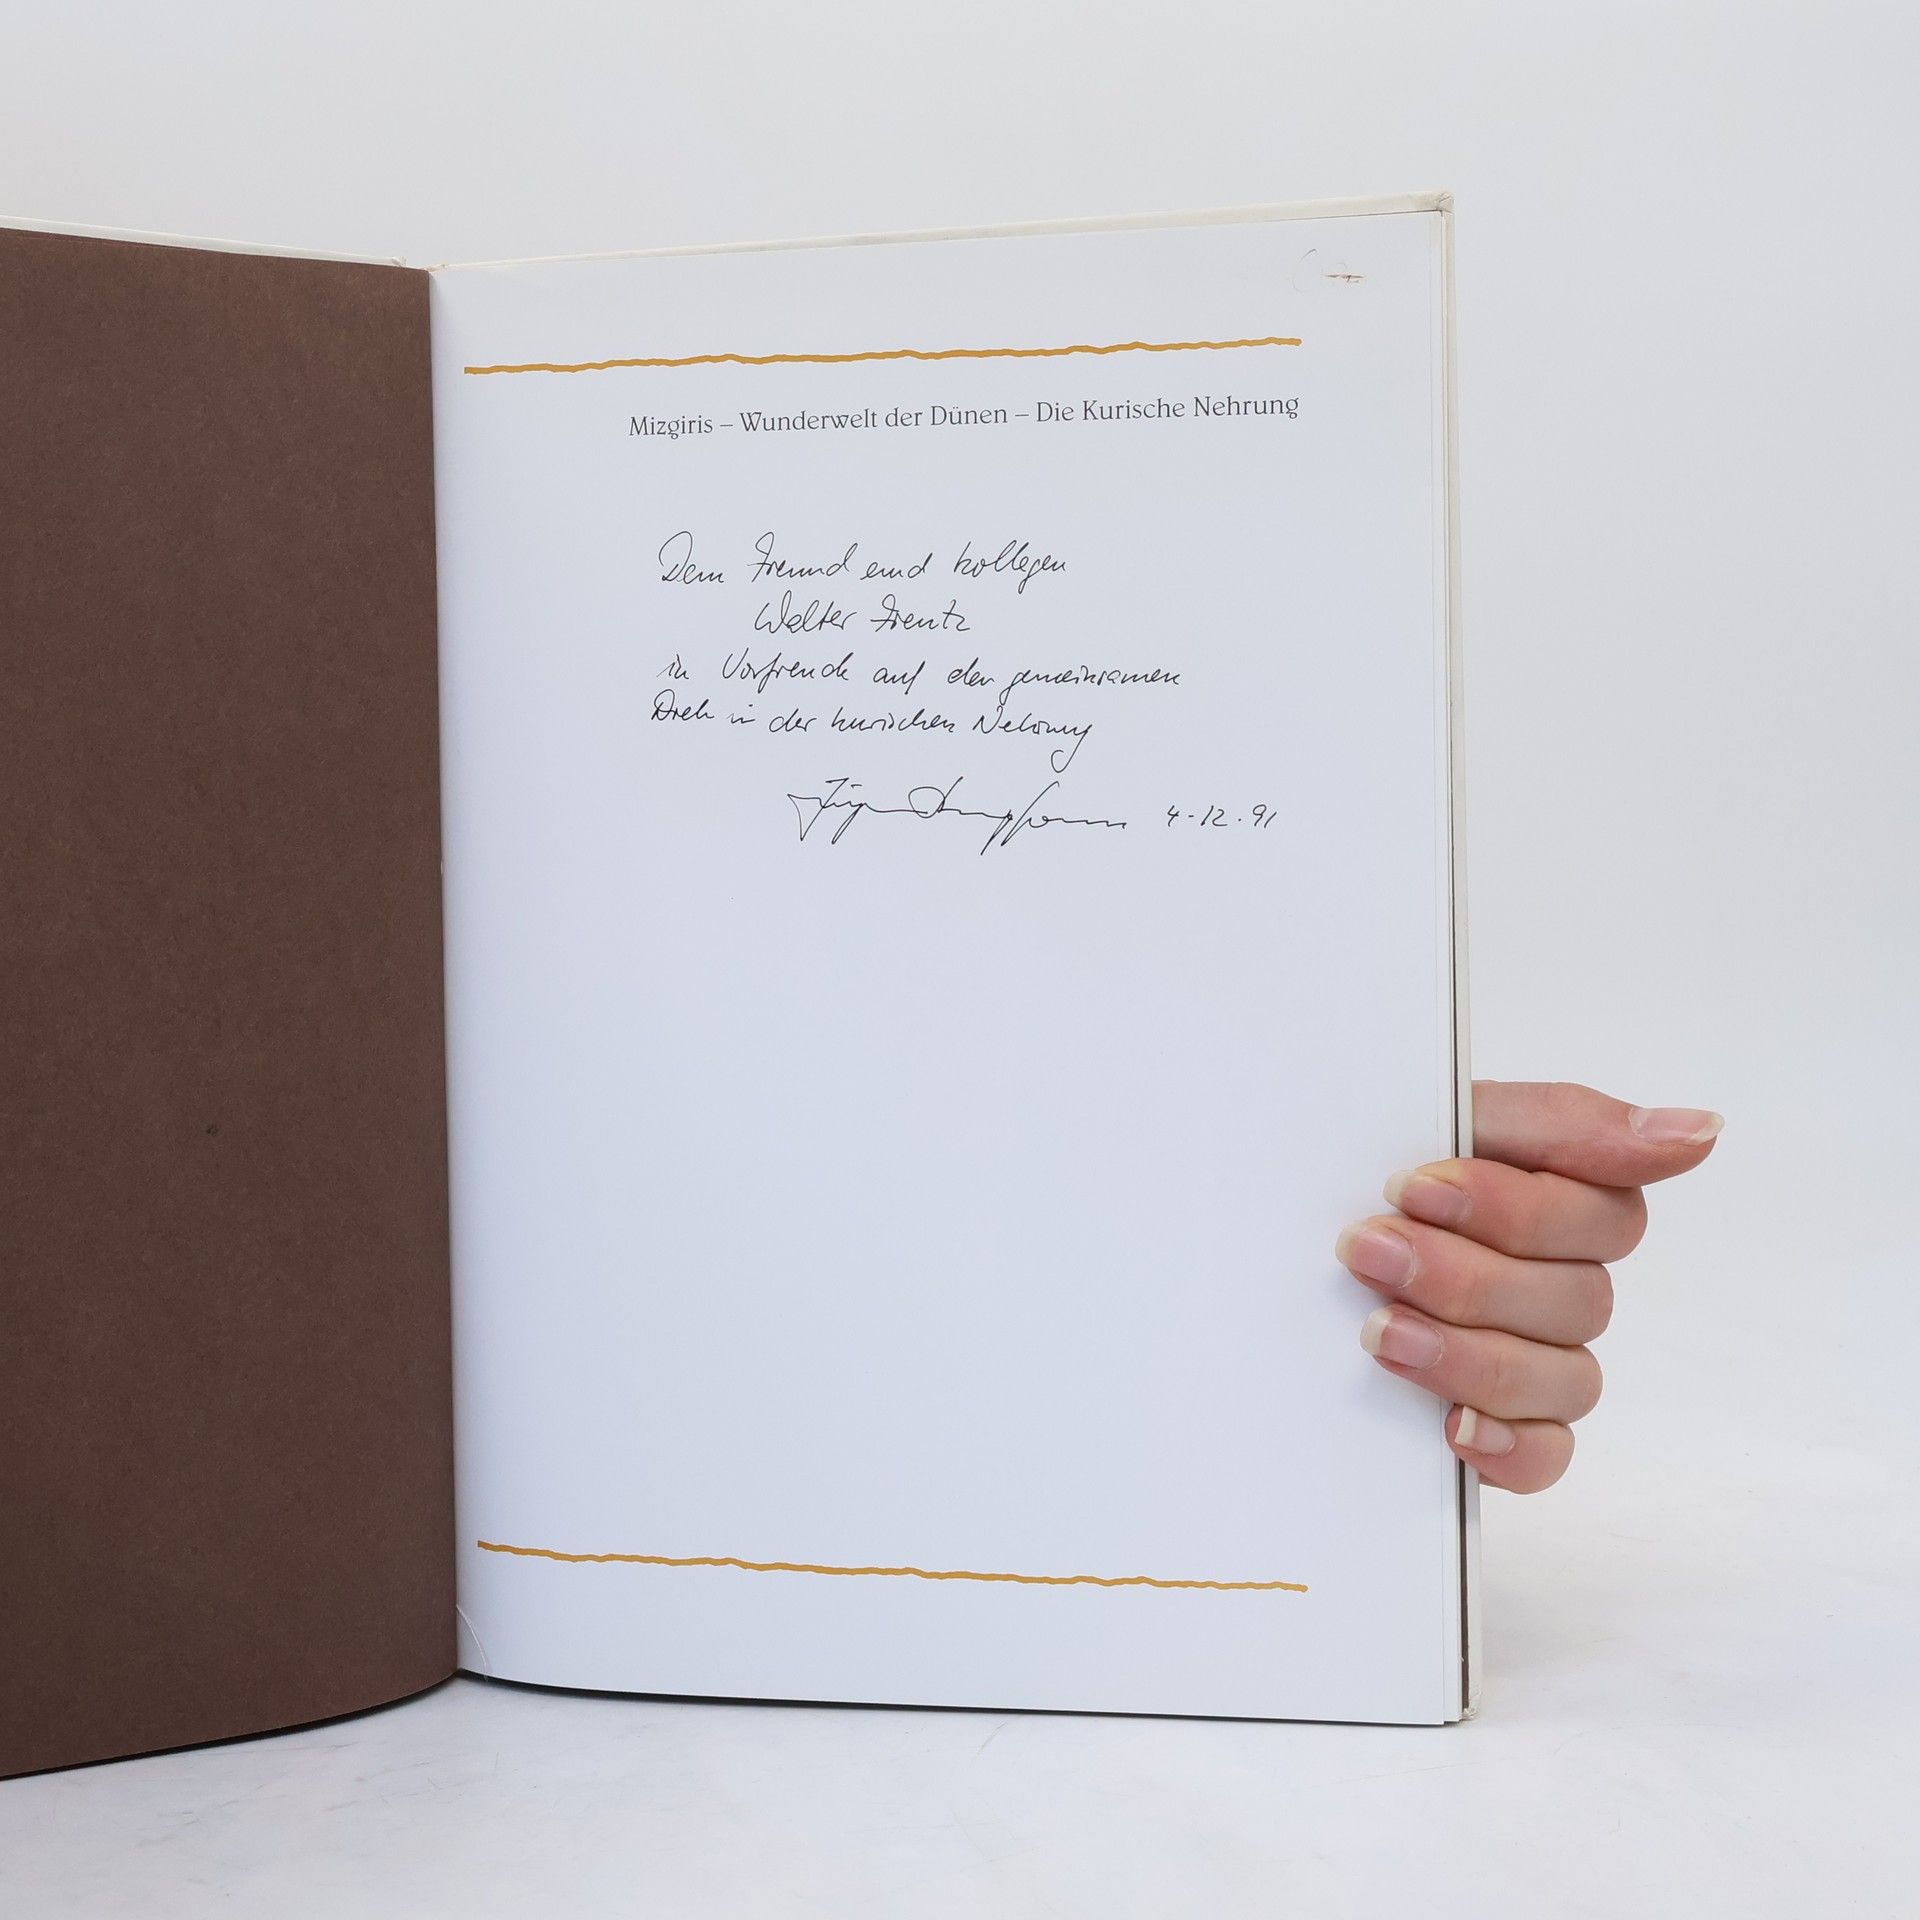 Mizgiris – Wunderwelt der Dünen – Die Kurische Nehrung
Dem Freund und Kollegen
Walter Frentz
in Vorfreude auf den gemeinsamen
Dreh in der kurischen Nehrung
Jürgen 4-12.91